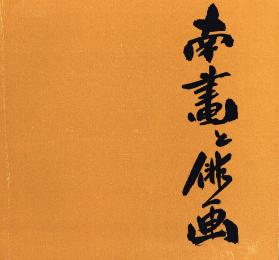 南畫と俳画